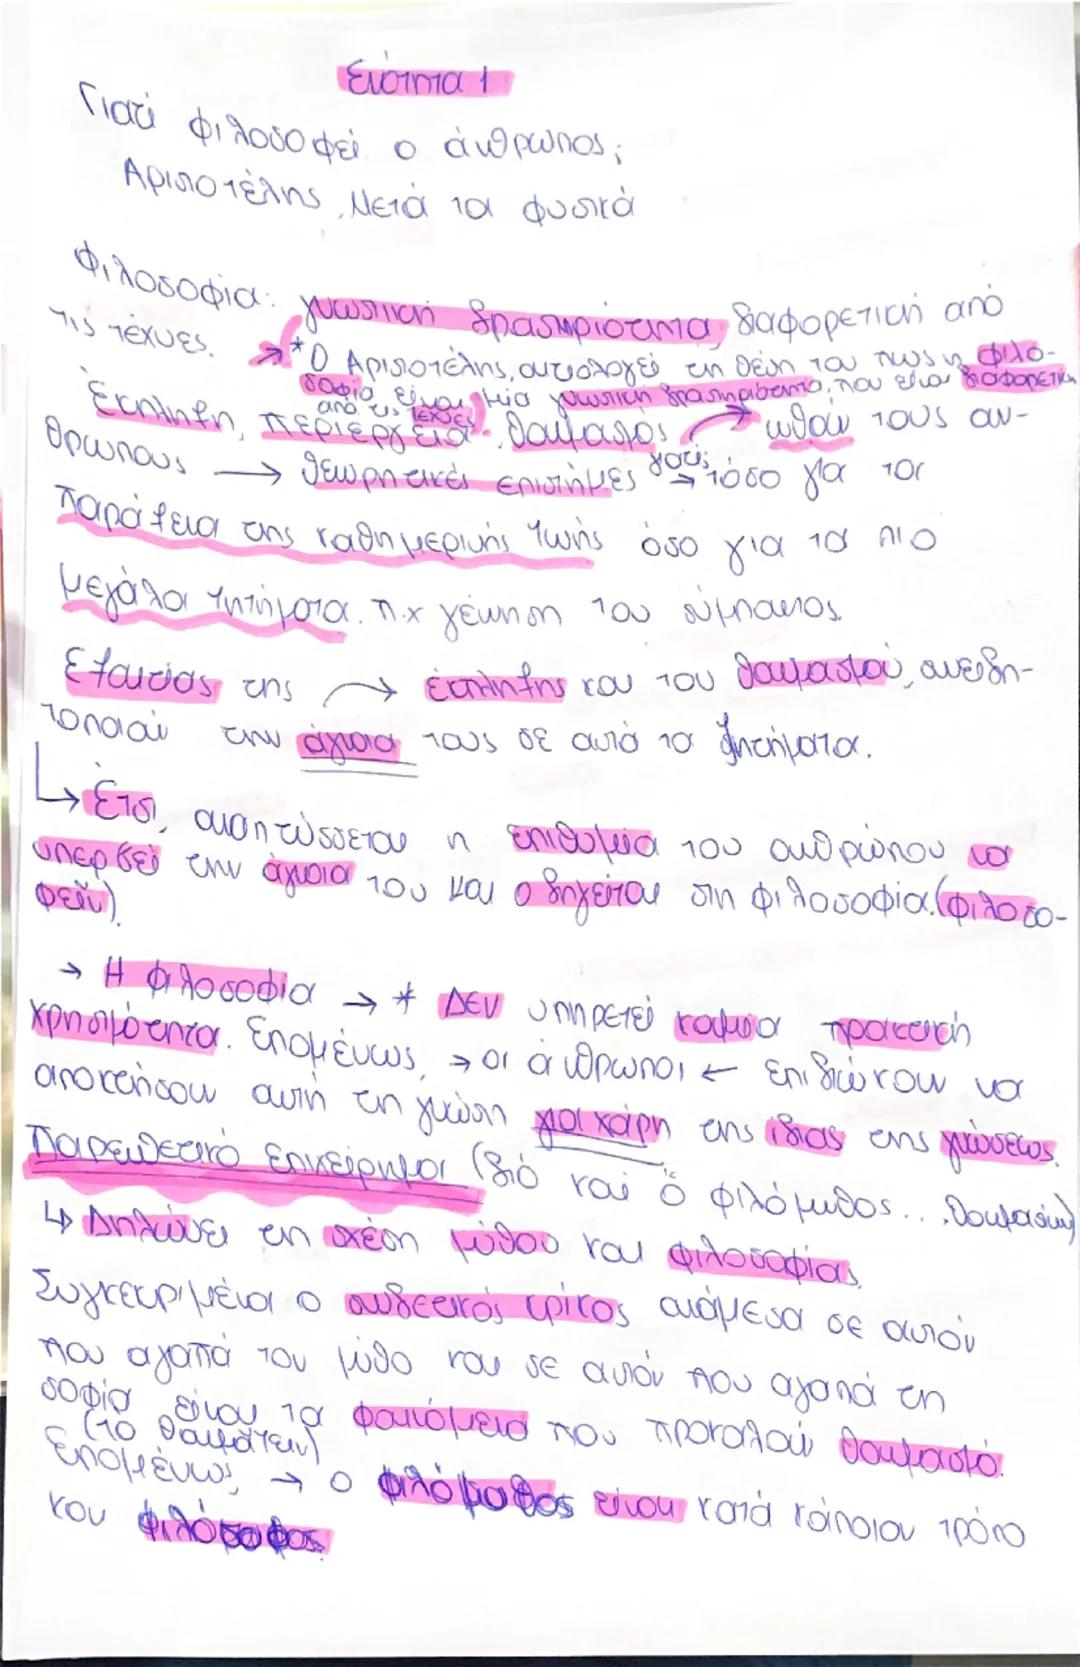 Ενότητα 1
Γιατί φιλοσοφεί ο άνθρωπος;
Αριστοτέλης, Μετά τα φυσικά
Φιλοσοφία: γνωστική δραστηριότητα, διαφορετική από
τις τέχνες.
* Ο Αριστοτέλης, αιτιολογεί τη θέση του πως η φιλο-
σοφία είναι μία γνωστική δραστηριότητα, που είναι διαφορετική
από τις τέχνες
Έκπληξη, περιέργεια, θαυμασμός → ωθούν τους αν-
θρώπους → θεωρητικές επιστήμες → τόσο για τα
παράξενα της καθημερινής ζωής όσο για τα πιο
μεγάλα ζητήματα. π.χ γέννηση του σύμπαντος
Εξαιτίας της → έκπληξης και του θαυμασμού, συνειδη-
τοποιούν την άγνοια τους σε αυτά τα ζητήματα.
↳ Έτσι, αναπτύσσεται η επιθυμία του ανθρώπου να
υπερβεί την άγνοια του και οδηγείται στη φιλοσοφία. (φιλοσο-
φείν)
→ Η φιλοσοφία → * ΔΕΝ υπηρετεί καμία πρακτική
χρησιμότητα. Επομένως, → οι άνθρωποι ← επιδιώκουν να
αποκτήσουν αυτή τη γνώση για χάρη της ίδιας της γνώσεως.
Παρενθετικό επιχείρημα (διό καί ὁ φιλόμυθος... θαυμασίων)
↳ Δηλώνει τη σχέση μύθου και φιλοσοφίας.
Συγκεκριμένα ο συνδετικός κρίκος ανάμεσα σε αυτόν
που αγαπά τον μύθο και σε αυτόν που αγαπά τη
σοφία είναι τα φαινόμενα που προκαλούν θαυμασμό.
(το θαυμάζειν)
Επομένως, → ο φιλόμυθος είναι κατά κάποιον τρόπο
και φιλόσοφος